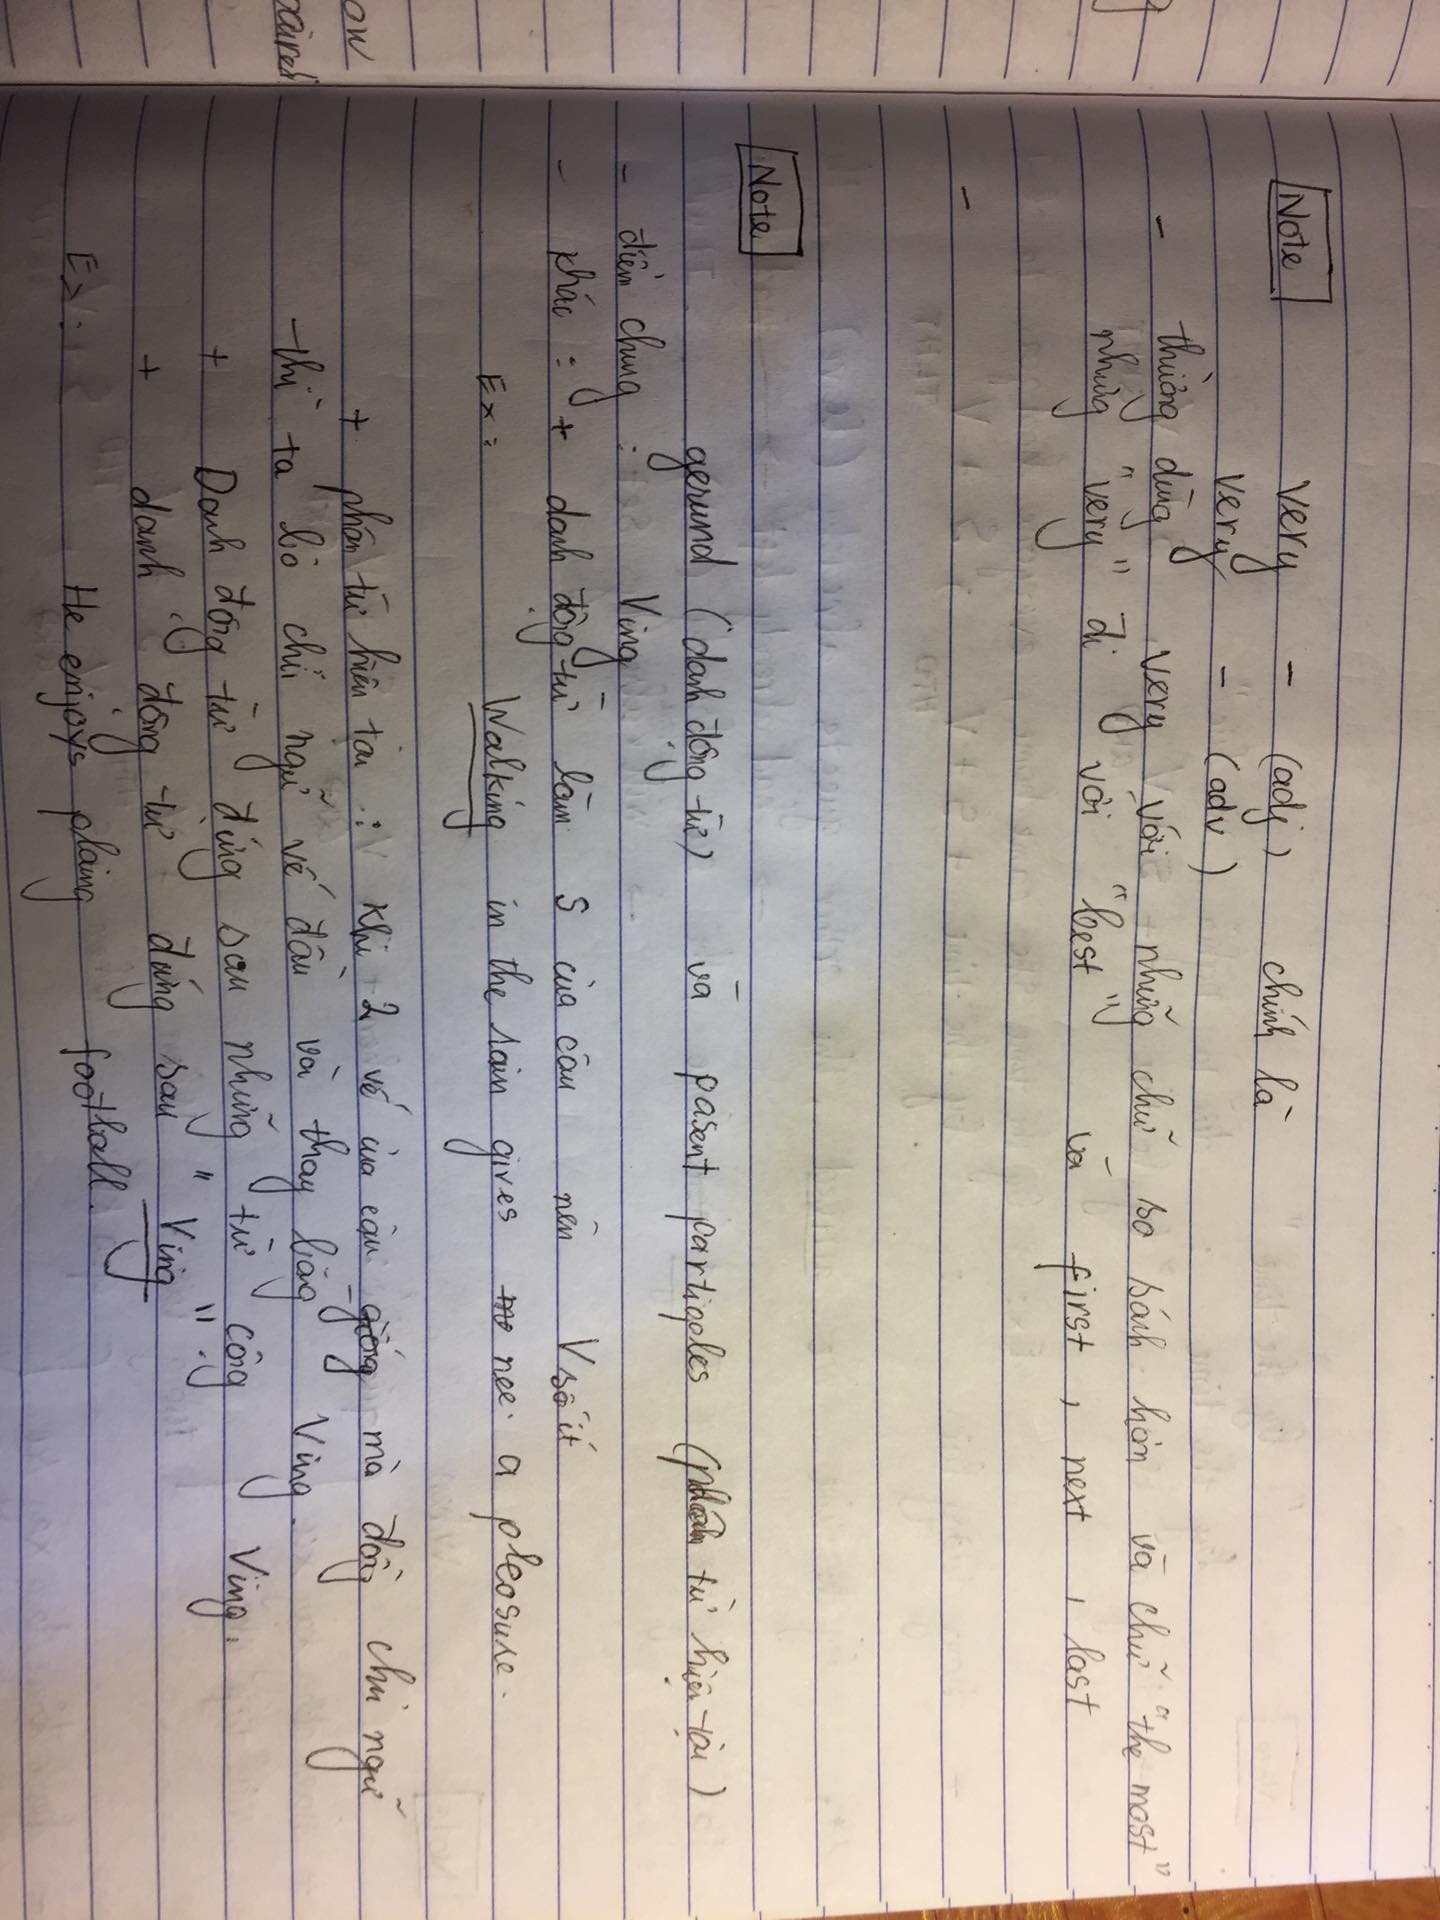 ow
paired
Note
very - (adj) chính là
very - (adv)
- thường dùng very với những chữ so sánh hơn và chữ "the most"
nhưng "very" đi với "best" và first, next, last
-
Note
gerund (danh động từ) và pasent partigples (phân từ hiện tại)
- điểm chung : Ving
- khác : + danh động từ làm S của câu nên V số ít
Ex : Walking in the rain gives me a pleasure.
+ phân từ hiện tại : khi 2 vế của câu giống mà đồng chủ ngữ
thì ta bỏ chủ ngữ vế đầu và thay bằng Ving.
+ Danh động từ đứng sau những từ cộng Ving.
+ danh động từ đứng sau "Ving".
Ex : He enjoys plaing football.